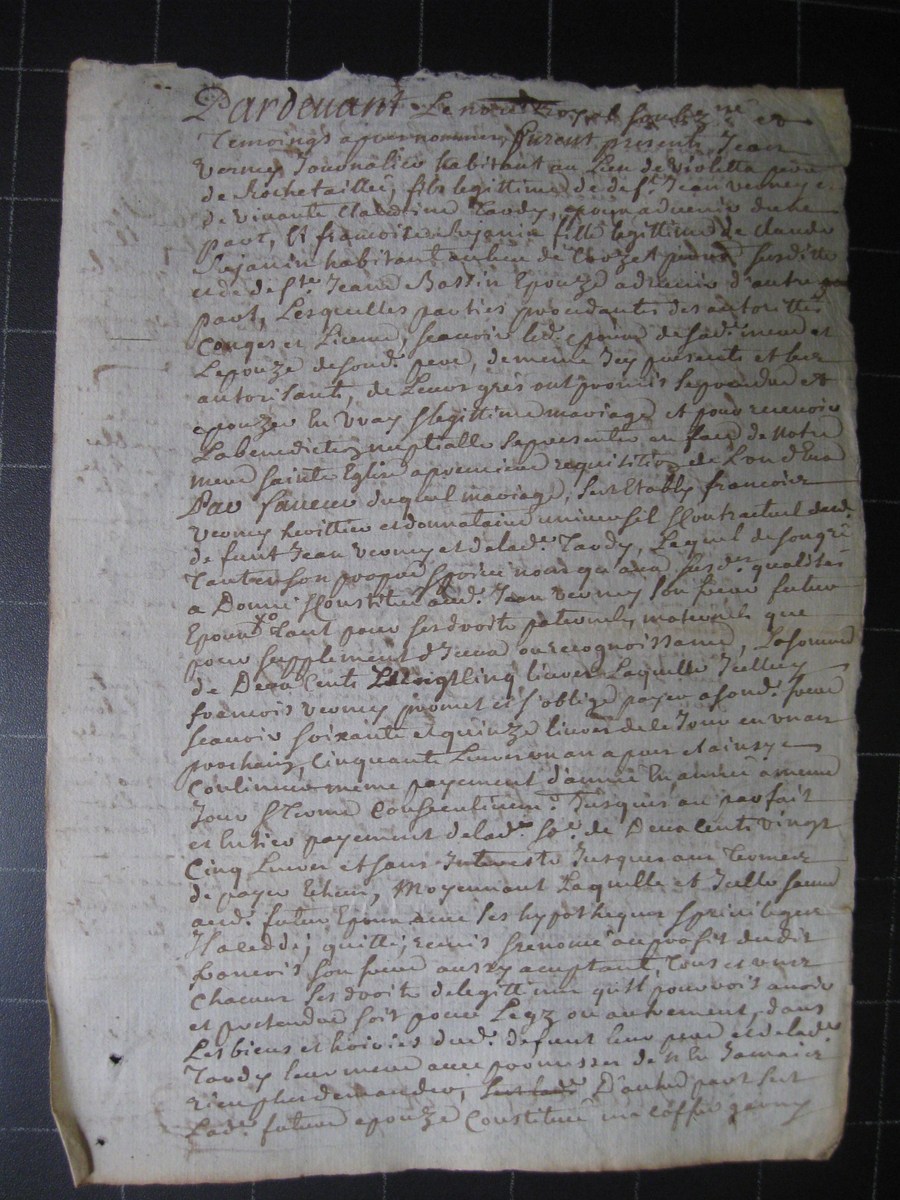 Pardevant Le notre Royal soubz.né et
Temoings apres nommes, furent presents Jean
Verney Journalier habitant au Lieu de Violetta parr.
de Rochetaillée, fils legittime de deft. Jean Verney &
de vivante Claudine Tardy, epoux advenir d'une
part, Et francoise Rejanin fille legittime de Claude
Rejanin habitant au lieu de parr.e susditte
et de defte. Jeane Bassin Epouze advenir d'autre
part, Lesquelles parties procedantes des autorittés
Conges et Licence, scavoir led. epoux de sad. mere et
Lepouze de sond. pere, de meme Icy presents et les
autorisants, de Leurs grés ont promis se prendre et
epouzer En vray & legittime mariage et pour recevoir
La benediction nuptialle se presenter en face de notre
mere sainte Eglise a premiere requisition de L'un d'Eux
Par faveur duquel mariage, s'est Etably francois
Verney heritier et donnataire universel & contractuel dud.
defunt Jean Verney et de lad.e Tardy, Lequel de son gré
Tant en son propre & privé nom qu'aux susd.es qualités
a Donné & Constitué aud. Jean Verney son frere futur
Epoux Tant pour ses droits paternels, maternels que
pour supplement d'Iceux ou recognoissance, La somme
de Deux Cents vingt Cinq livres Laquelle Icelluy
francois Verney promet et s'oblige payer a sond. frere
scavoir soixante et quinze livres de ce Jour en un an
prochain, Cinquante Livres un an apres et ainsy
Continuer meme payement d'année En année a meme
Jour & Terme Consecutivem.t Jusques au parfait
et Entier payement de lad.e so.e de Deux Cents vingt
Cinq Livres et sans Interests Jusques aux Termes
de payer Echeus, Moyennant Laquelle et Icelle sauve
aud. futur Epoux avec ses hypotheques & privileges
Il a ceddé, quitté, remis & renoncé au profit dudit
francois son frere aussy acceptant, Tous et uns
Chacuns ses droits de legittime qu'il pouvoit avoir
et pretendre soit pour Legz ou autrement, dans
Les biens et hoiries dud. defunt leur pere et de lad.e
Tardy leur mere avec promesses de n'En Jamais
rien plus demander, D'autre part s'est
Lad.e future epouze Constitué un coffre garny